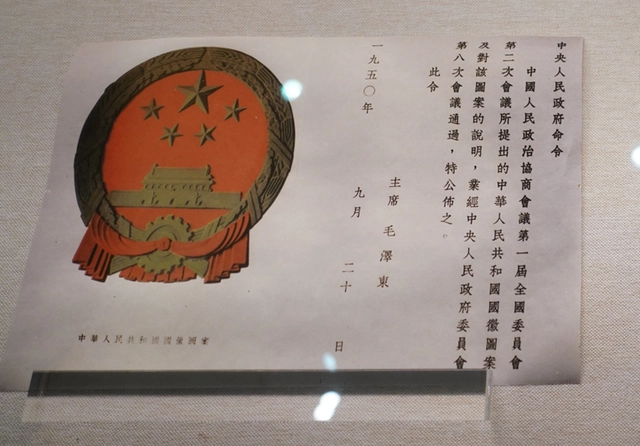 中央人民政府命令
中國人民政治協商會議第一屆全國委員會
第二次會議所提出的中華人民共和國國徽圖案
及對該圖案的說明，業經中央人民政府委員會
第八次會議通過，特公佈之。
此令
主席 毛澤東
一九五〇年 九月 二十 日
中華人民共和國國徽圖案